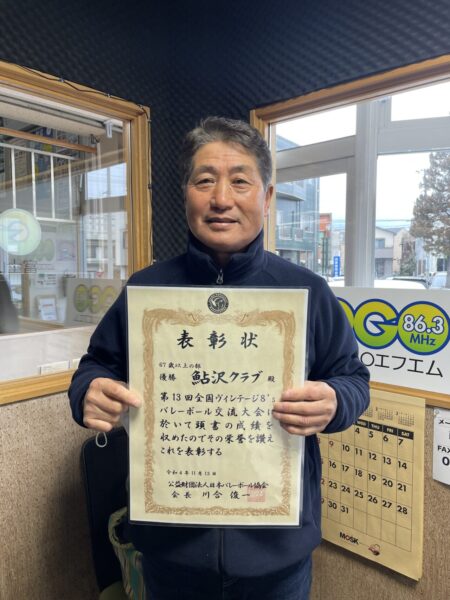 表彰状
67歳以上の部
優勝 鮎沢クラブ 殿
第13回全国ヴィンテージ8's
バレーボール交流大会に
於いて頭書の成績を
収めたのでその栄誉を讃え
これを表彰する
令和4年11月13日
公益財団法人日本バレーボール協会
会長 川合俊一
GO
86.3
MHz
○エフエム
メー
FAX
0
3 4 5 6 7
10 11 12 13 14
17 18 19 20 21
24 25 26 27 28
31
MOSK